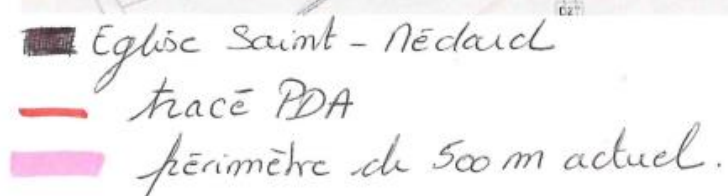 D27
Eglise Saint-Médard
tracé PDA
périmètre de 500 m actuel.